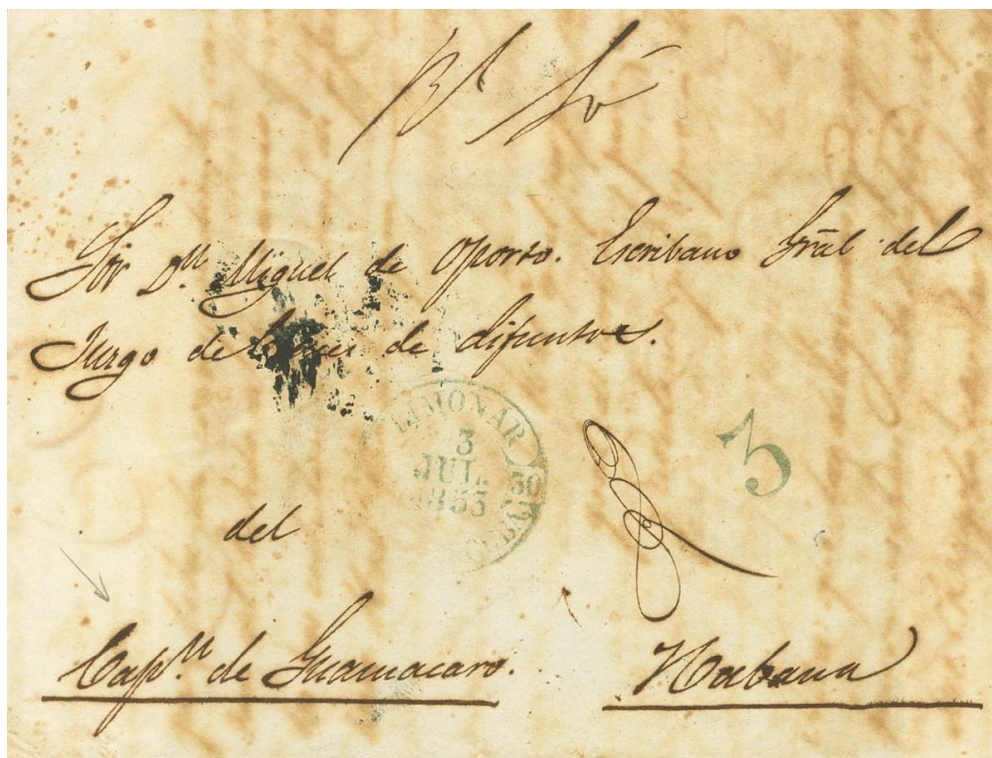 Sor Dn. Miguel de Oporto. Escribano Gral del
Juzgo de Bienes de difuntos.
LIMONAR
3
JUL.
1853
30
CUBA
3
del
Capn. de Guamacaro.
Habana